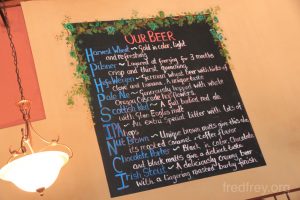 OUR BEER
Harvest Wheat ~ Gold in color, light
and refreshing
Pilsner ~ Lagered & freezing for 3 months
crisp and thirst quenching
Hefe-Weizen ~ German wheat beer with hints of
clove and banana. A unique taste
Pale Ale ~ Generously hopped with whole
Oregon Cascade hop flowers.
Scottish Ale ~ A full bodied red ale
with Slow Eagles malt
IPA ~ An extra Special bitter with lots of
Nut Brown ~ Unique brown malts give this ale
it's nutty caramel & toffee flavor
Chocolate Porter ~ Black in color. Chocolate
and black malts give a distinct taste.
Irish Stout ~ A deliciously creamy beer
with a lingering roasted barley finish
fredfrey.org